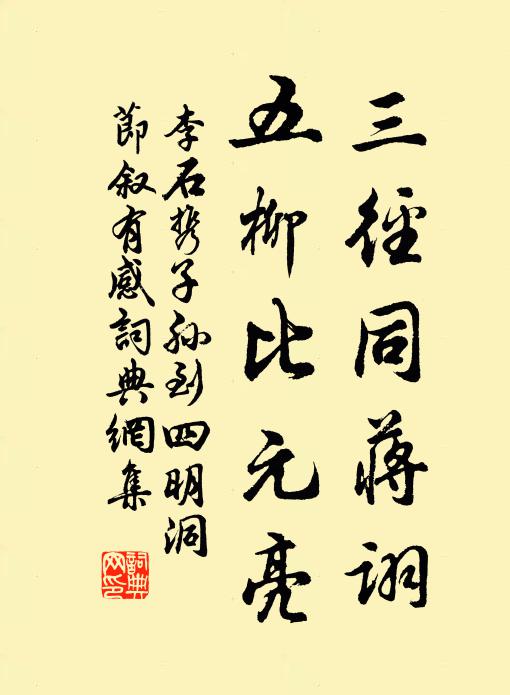 三徑同蔣詡
五柳比元亮
李石携子孫到四明洞
節叙有感詞典網集
詞典
网印